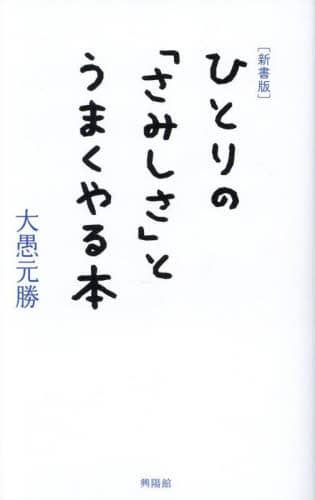 [新書版]
ひとりの
「さみしさ」と
うまくやる本
大愚元勝
興陽館